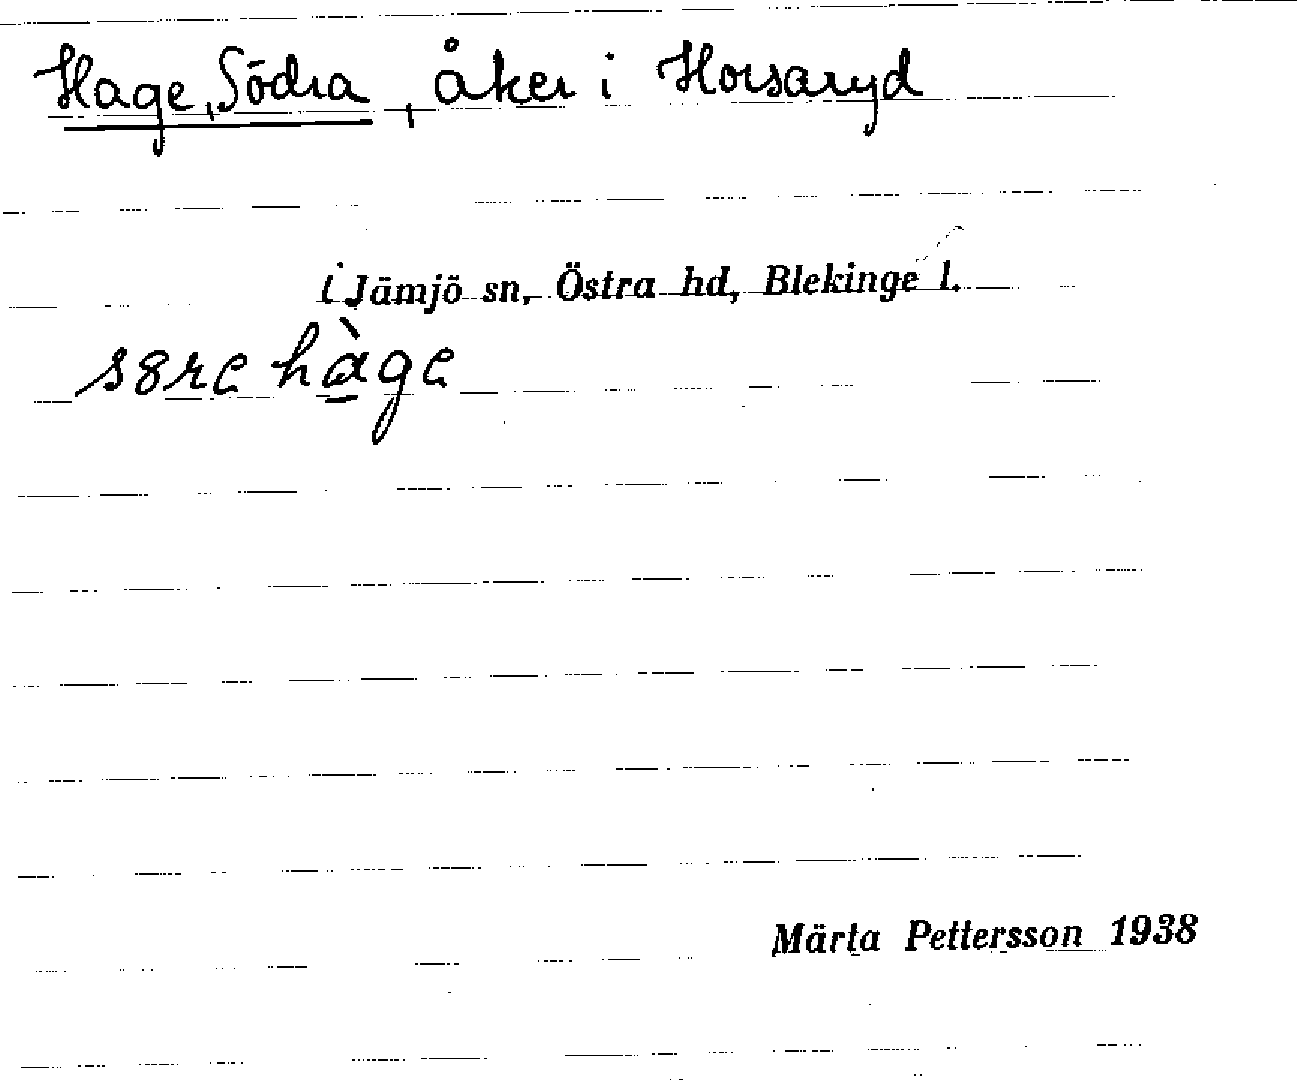 Hage, Södra, åker i Horsaryd
i Jämjö sn, Östra hd, Blekinge l.
s8re hàge
Märta Pettersson 1938